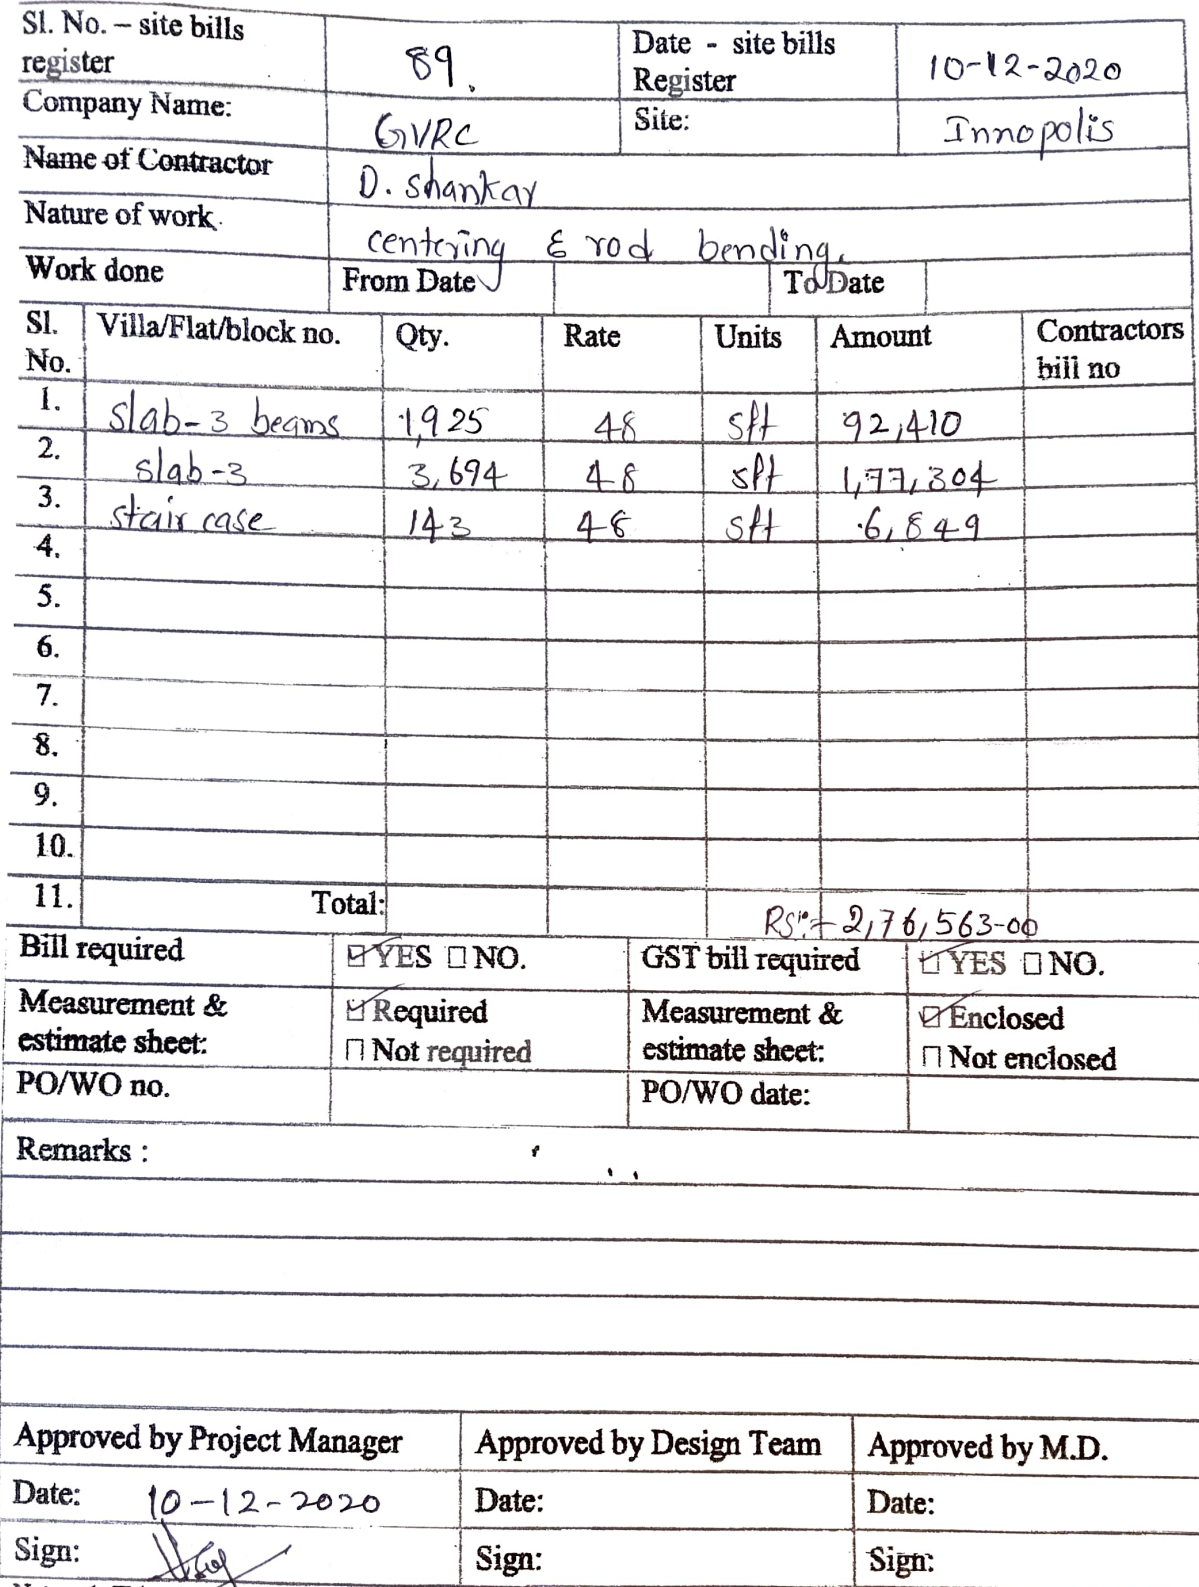 Sl. No. – site bills register 89. Date - site bills Register 10-12-2020
Company Name: GVRC Site: Innopolis
Name of Contractor D. Shankar
Nature of work. centering & rod bending.
Work done From Date To Date
Sl. No. Villa/Flat/block no. Qty. Rate Units Amount Contractors bill no
1. slab-3 beams 1,925 48 sft 92,410
2. slab-3 3,694 48 sft 1,77,304
3. stair case 143 48 sft 6,849
4.
5.
6.
7.
8.
9.
10.
11. Total: Rs:- 2,76,563-00
Bill required ☑ YES ☐ NO. GST bill required ☑ YES ☐ NO.
Measurement & estimate sheet: ☑ Required ☐ Not required Measurement & estimate sheet: ☑ Enclosed ☐ Not enclosed
PO/WO no. PO/WO date:
Remarks :
Approved by Project Manager Approved by Design Team Approved by M.D.
Date: 10-12-2020 Date: Date:
Sign: Sign: Sign: